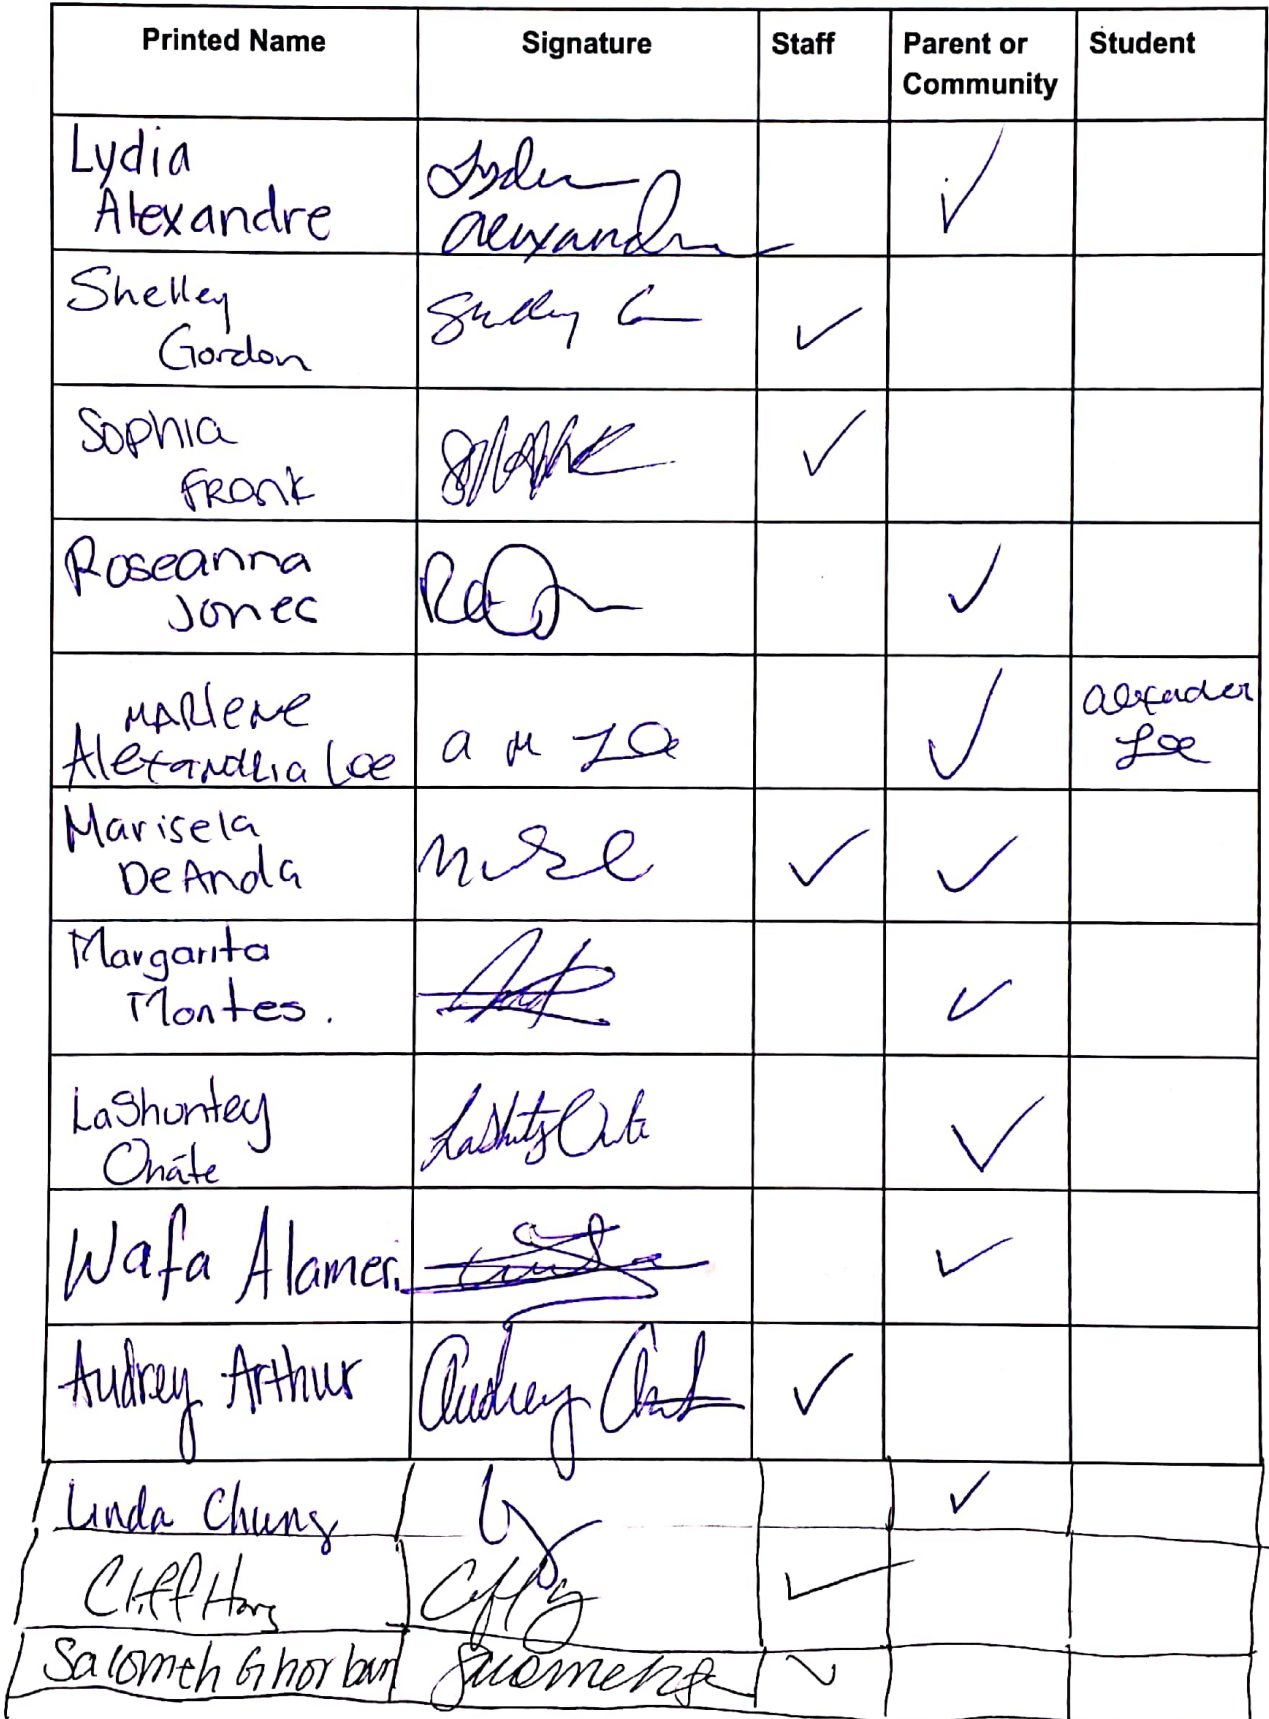 Printed Name Signature Staff Parent or Community Student
Lydia
Alexandre Lydia Alexandre ✓
Shelley
Gordon ✓
Sophia
Frank ✓
Roseanna
Jones ✓
Marlene
Alexandria Loe a m Loe ✓ Alexander Loe
Marisela
DeAnda ✓ ✓
Margarita
Montes. ✓
LaShuntey
Oñate ✓
Wafa Alameri ✓
Audrey Arthur Audrey ✓
Linda Chung ✓
Cliff Hong ✓
Salomeh Ghorban ✓